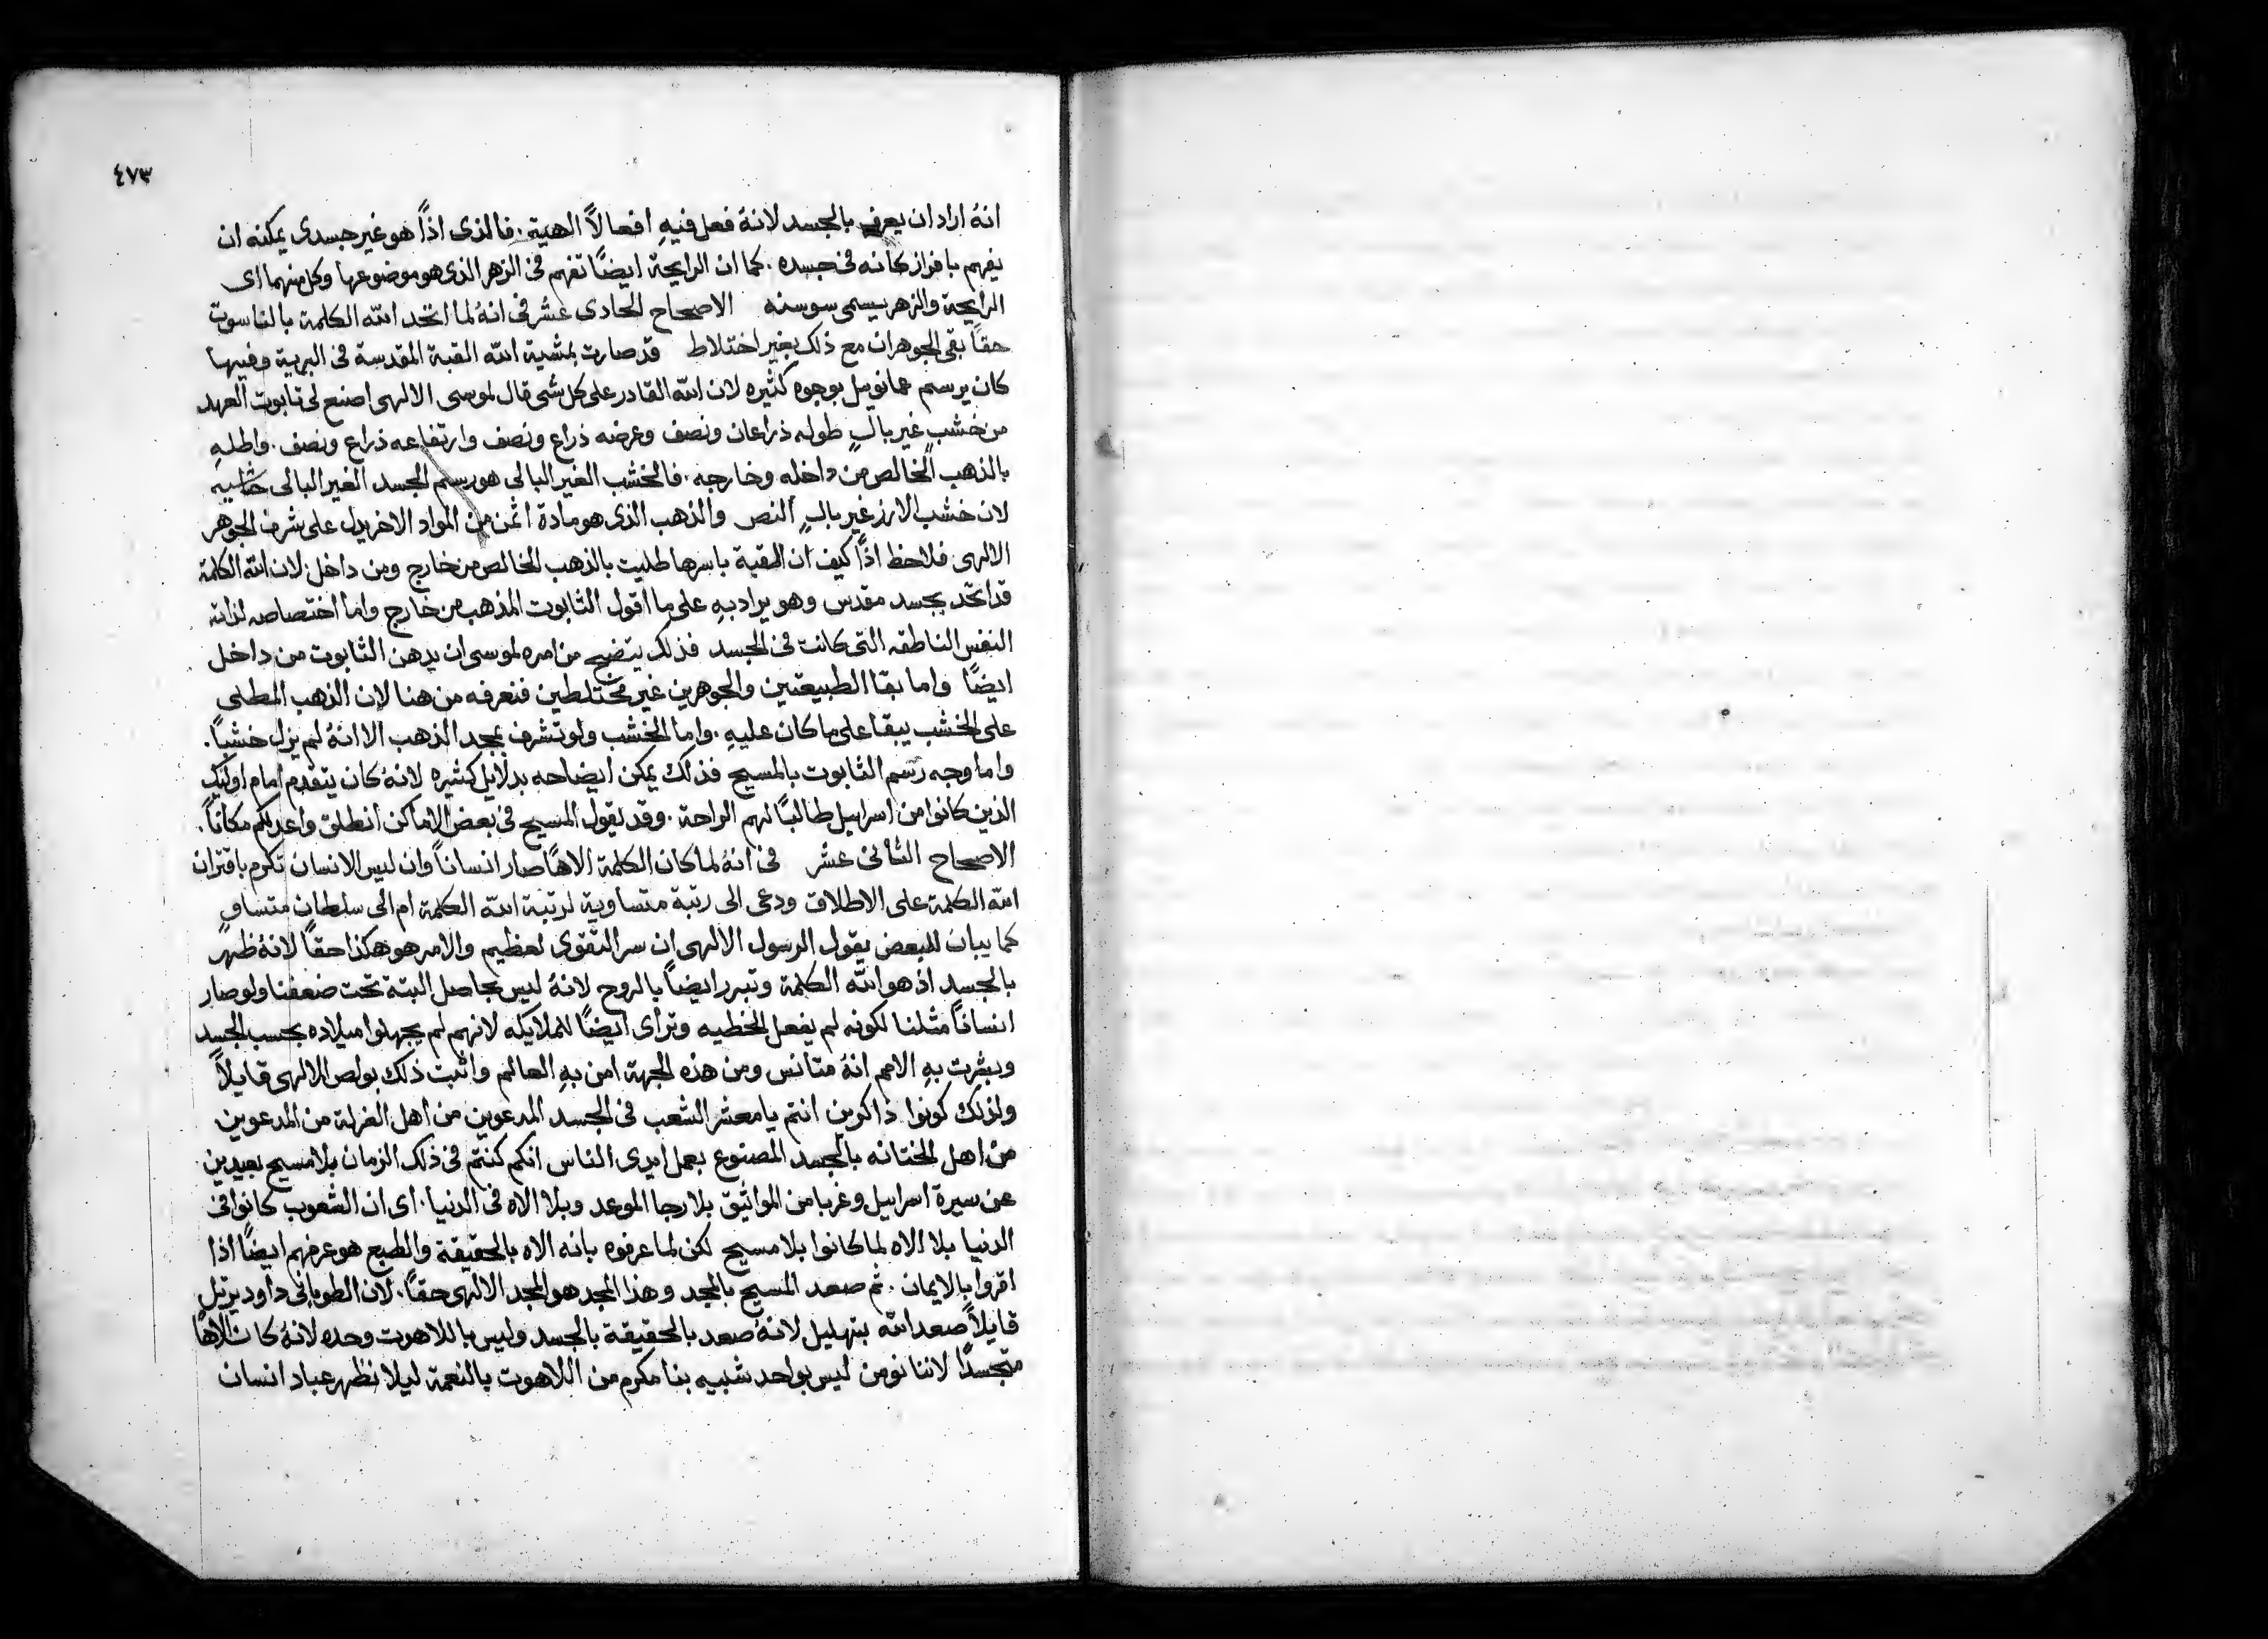 ٤٧٣
انهُ اراد ان يعرف بالجسد لانهُ فعل فيهِ افعالاً الهية. فالذى اذاً هو غير جسدى يمكنه ان
يفهم بافراز كانه فى جسده. كما ان الرايحة ايضاً تفهم فى الزهر الذى هو موضوعها وكل منهما اى
الرايحة والزهر يسمى سوسنه الاصحاح الحادى عشر فى انهُ لما اتحد الله الكلمة بالناسوت
حقاً بقى الجوهران مع ذلك بغير اختلاط قد صارت بمشية الله القبة المقدسة فى البرية وفيها
كان يرسم عمانويل بوجوه كثيره لان الله القادر على كل شى قال لموسى الالهى اصنع لى تابوت العهد
من خشبٍ غير بالٍ طوله ذراعان ونصف وعرضه ذراع ونصف وارتفاعه ذراع ونصف. واطلهِ
بالذهب الخالص من داخله وخارجه. فالخشب الغير البالى هو رسم الجسد الغير البالى
لان خشب الارز غير بالٍ النص والذهب الذى هو مادة اثمن من المواد الاخر يدل على شرف الجوهر
الالهى فلاحظ اذاً كيف ان القبة باسرها طليت بالذهب الخالص من خارج ومن داخل لان الله الكلمة
قد اتحد بجسد مقدس وهو يراد بهِ على ما اقول التابوت المذهب من خارج واما اختصاصه لذاته
النفس الناطقه التى كانت فى الجسد فذلك يتضح من امره لموسى ان يدهن التابوت من داخل
ايضاً واما بقا الطبيعتين والجوهرين غير مختلطين فنعرفه من هنا لان الذهب المطلى
على الخشب يبقا على ما كان عليهِ. واما الخشب ولو تشرف بمجد الذهب الا انهُ لم يزل خشباً.
واما وجه رسم التابوت بالمسيح فذلك يمكن ايضاحه بدلايل كثيره لانهُ كان يتقدم امام اوليك
الذين كانوا من اسراييل طالباً لهم الراحة. وقد يقول المسيح فى بعض الاماكن انطلق واعد لكم مكاناً.
الاصحاح الثانى عشر فى انهُ لما كان الكلمة الاهاً صار انساناً وان ليس الانسان تكرم باقتران
الله الكلمة على الاطلاق ودعى الى رتبة متساوية لرتبة الله الكلمة ام الى سلطان متساوٍ
كما يبان للبعض يقول الرسول الالهى ان سر التقوى لعظيم والامر هو هكذا حقاً لانهُ ظهر
بالجسد اذ هو الله الكلمة وتبرر ايضاً بالروح لانهُ ليس بحاصل البتة تحت ضعفنا ولو صار
انساناً مثلنا لكونه لم يفعل الخطيه وترآى ايضاً للملايكه لانهم لم يجهلوا ميلاده بحسب الجسد
وبشرت بهِ الامم انهُ متانس ومن هذه الجهة امن بهِ العالم واثبت ذلك بولص الالهى قايلاً
ولذلك كونوا ذاكرين انتم يا معشر الشعب فى الجسد المدعوين من اهل الغرلة من المدعوين
من اهل الختانه بالجسد المصنوع بعمل ايدى الناس انكم كنتم فى ذلك الزمان بلا مسيح بعيدين
عن سيرة اسراييل وغربا من المواثيق بلا رجا الموعد وبلا الاه فى الدنيا. اى ان الشعوب كانوا فى
الدنيا بلا الاه لما كانوا بلا مسيح لكن لما عرفوه بانه الاه بالحقيقة والطبع هو عرفهم ايضاً اذا
اقروا بالايمان. ثم صعد المسيح بالمجد وهذا المجد هو المجد الالهى حقاً. لان الطوبانى داود يرتل
قايلاً صعد الله بتهليل لانهُ صعد بالحقيقة بالجسد وليس باللاهوت وحده لانهُ كان الاهاً
متجسداً لاننا نومن ليس بواحد شبيه بنا مكرم من اللاهوت بالنعمة ليلا نظهر عباد انسان